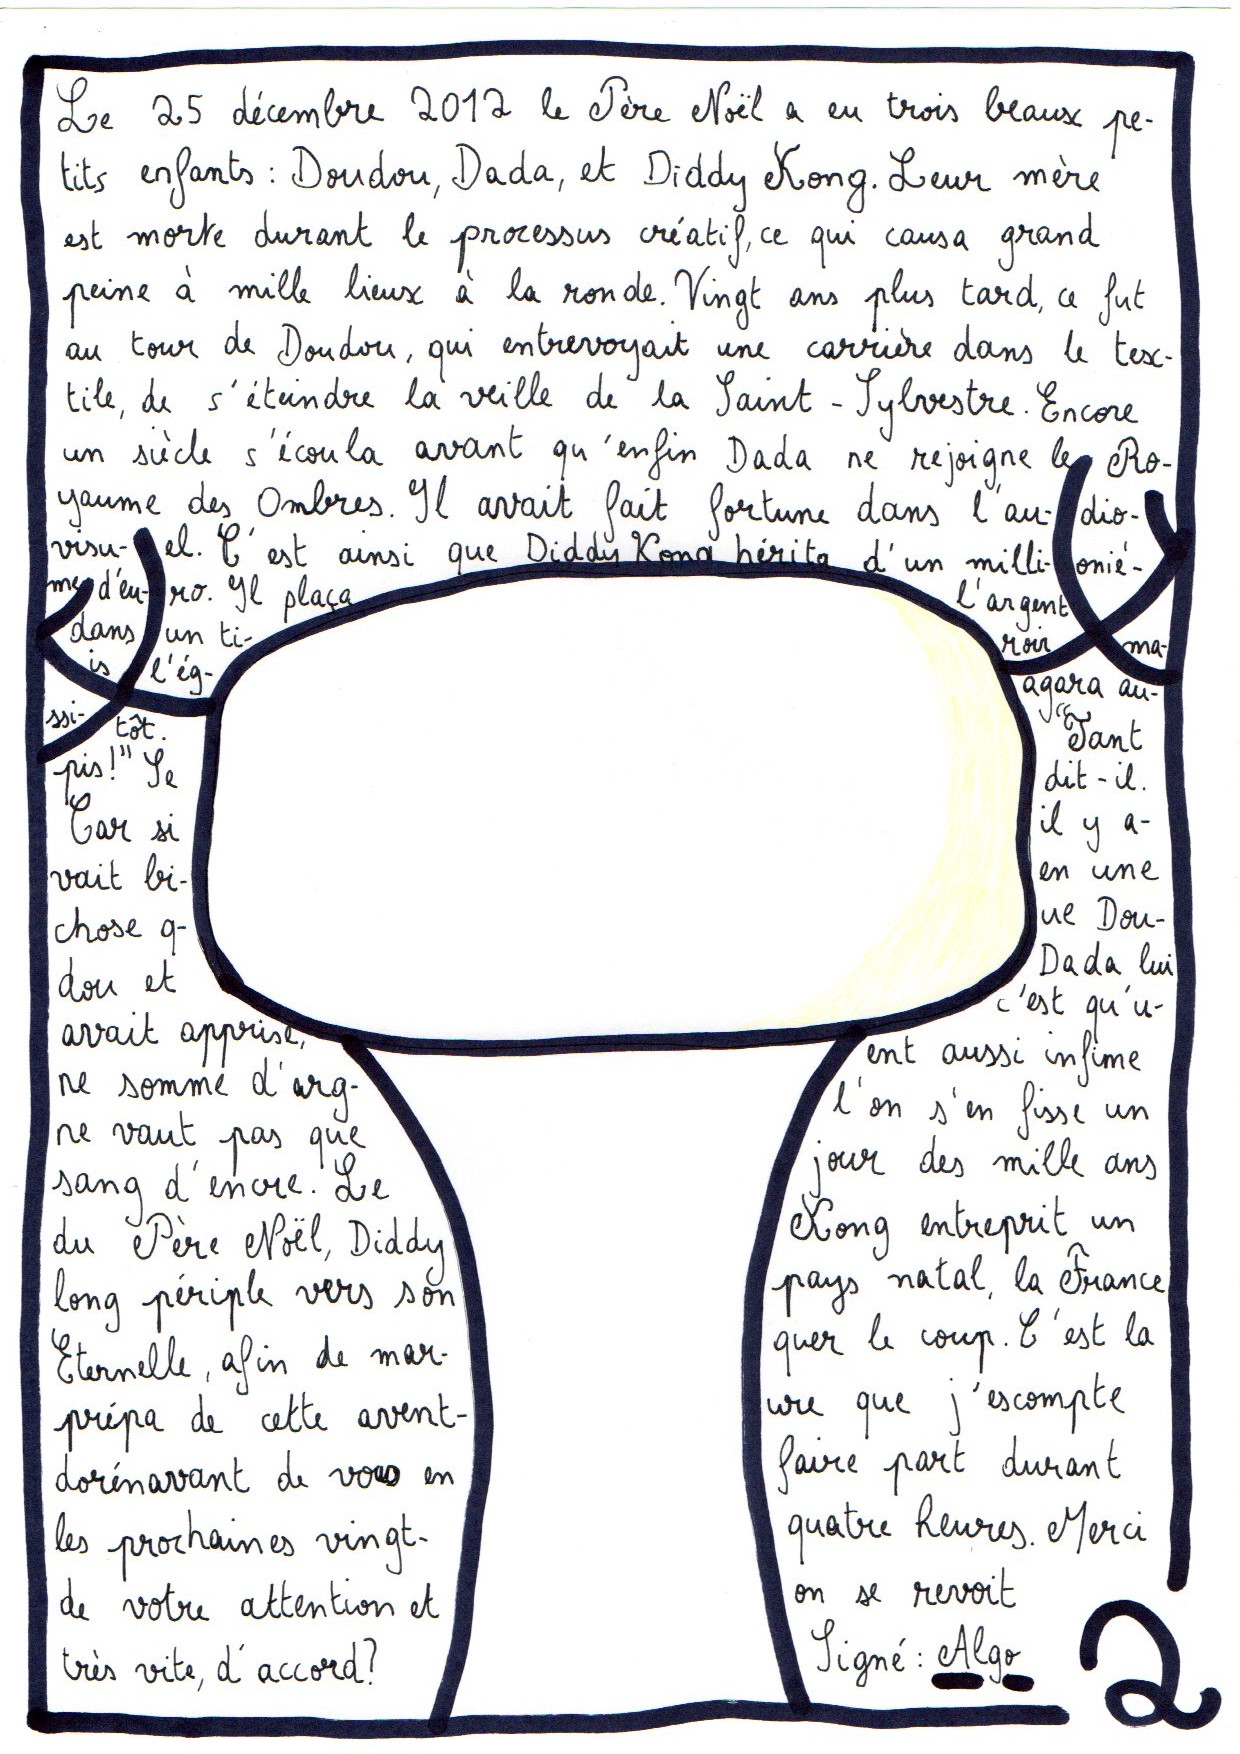 Le 25 décembre 2012 le Père Noël a eu trois beaux pe-
tits enfants : Doudou, Dada, et Diddy Kong. Leur mère
est morte durant le processus créatif, ce qui causa grand
peine à mille lieux à la ronde. Vingt ans plus tard, ce fut
au tour de Doudou, qui entrevoyait une carrière dans le tex-
tile, de s'éteindre la veille de la Saint-Sylvestre. Encore
un siècle s'écoula avant qu'enfin Dada ne rejoigne le Ro-
yaume des Ombres. Il avait fait fortune dans l'au-dio-
visu-el. C'est ainsi que Diddy Kong hérita d'un milli-onié-
me d'eu-ro. Il plaça l'argent
dans un ti- roir ma-
is l'ég- agara au-
ssi- tôt. "Tant
pis!" Se dit-il.
Car si il y a-
vait bi- en une
chose q- ue Dou-
dou et Dada lui
avait apprise, c'est qu'u-
ne somme d'arg- ent aussi infime
ne vaut pas que l'on s'en fisse un
sang d'encre. Le jour des mille ans
du Père Noël, Diddy Kong entreprit un
long périple vers son pays natal, la France
Eternelle, afin de mar- quer le coup. C'est la
prépa de cette avent- ure que j'escompte
dorénavant de vous en faire part durant
les prochaines vingt- quatre heures. Merci
de votre attention et on se revoit
très vite, d'accord? Signé : Algo
2